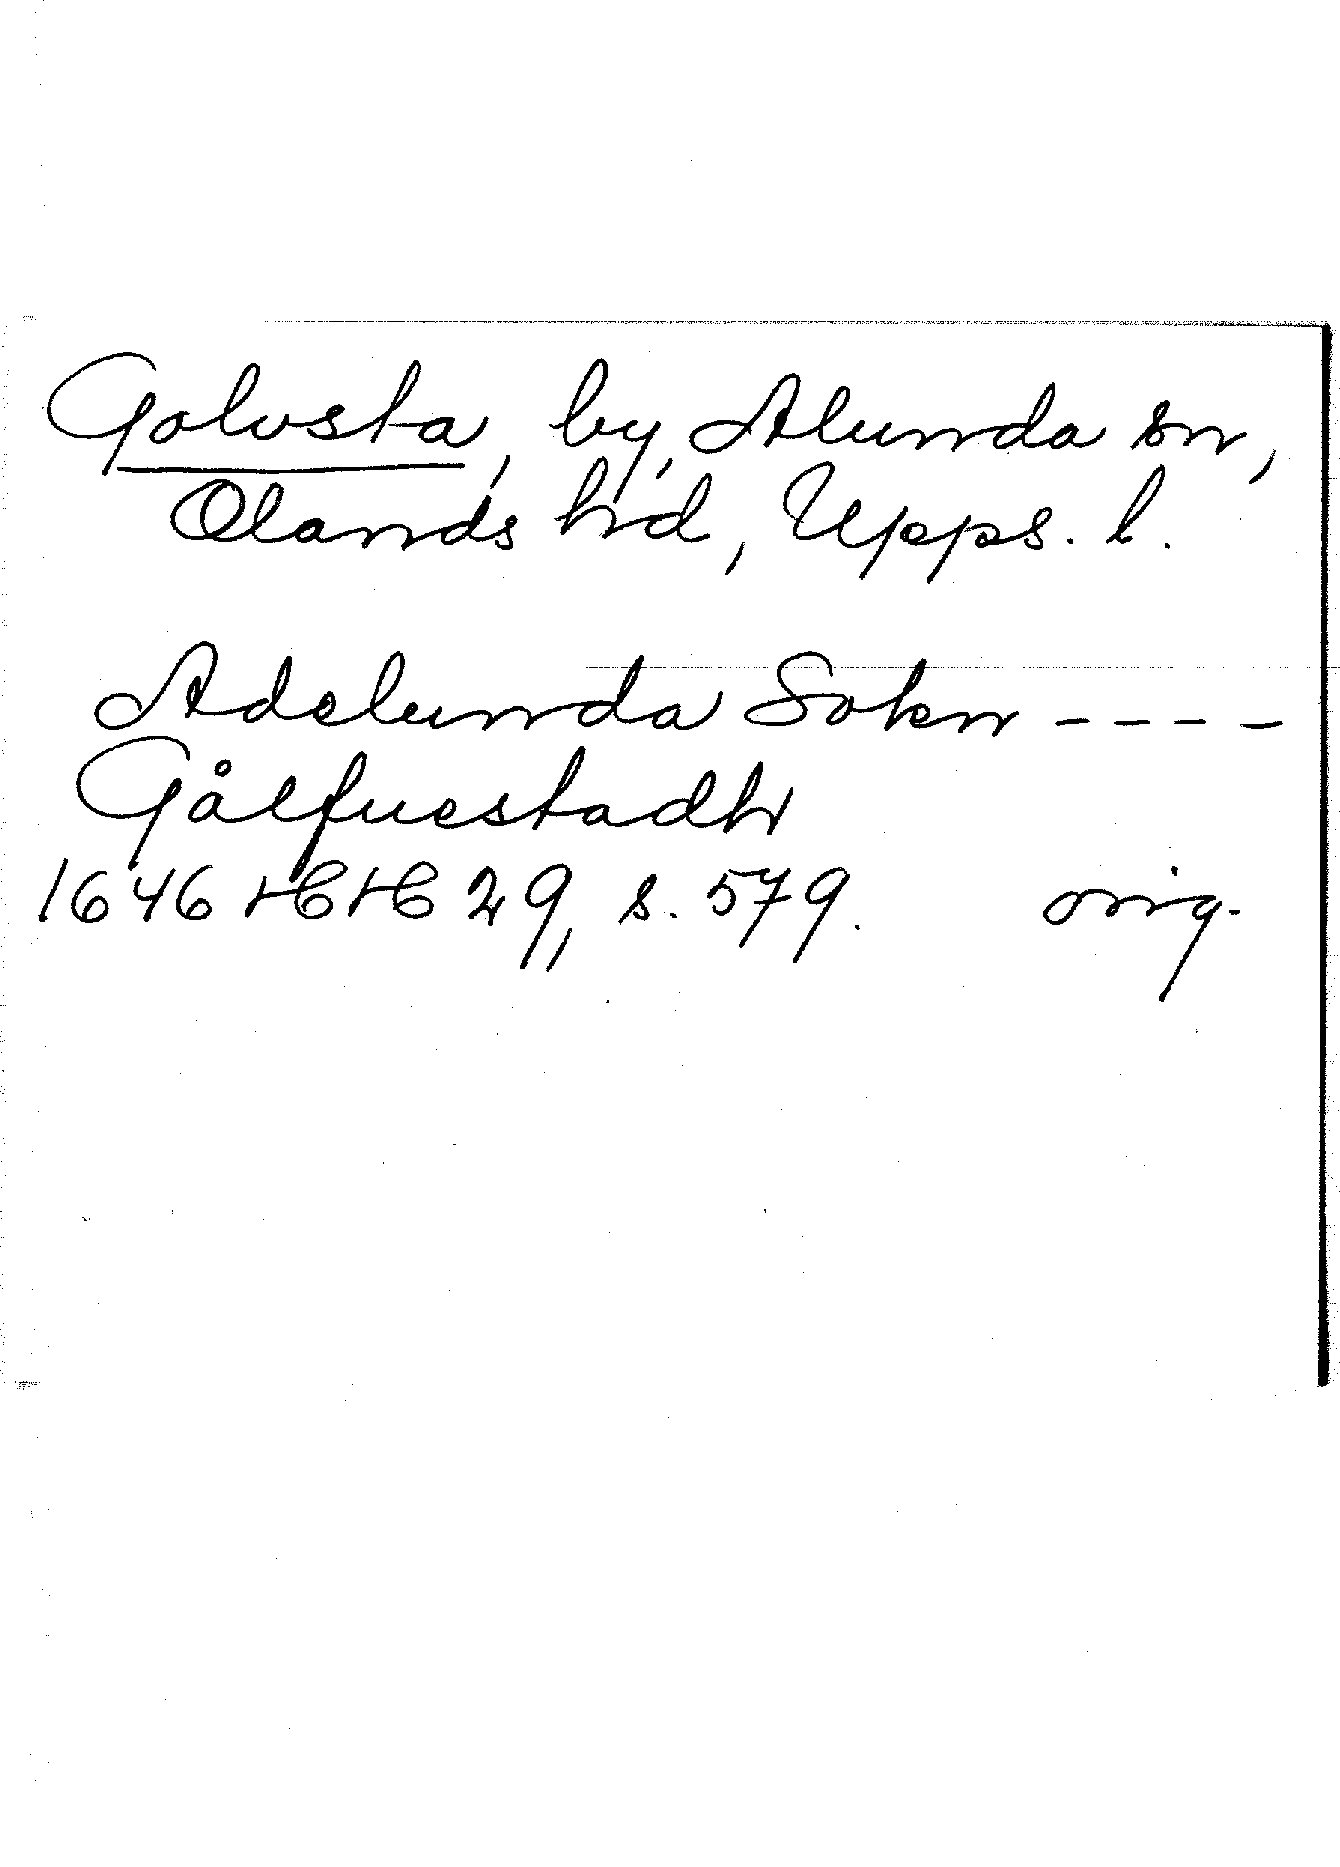 Golvsta, by, Alunda sn,
Olands hd, Upps. l.
Adelunda Sokn ----
Gålfuestadh
1646 HH 29, s. 579. orig.